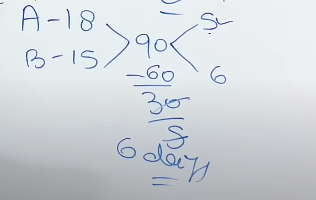 A - 18
B - 15
90
5
6
-60
30
5
6 days